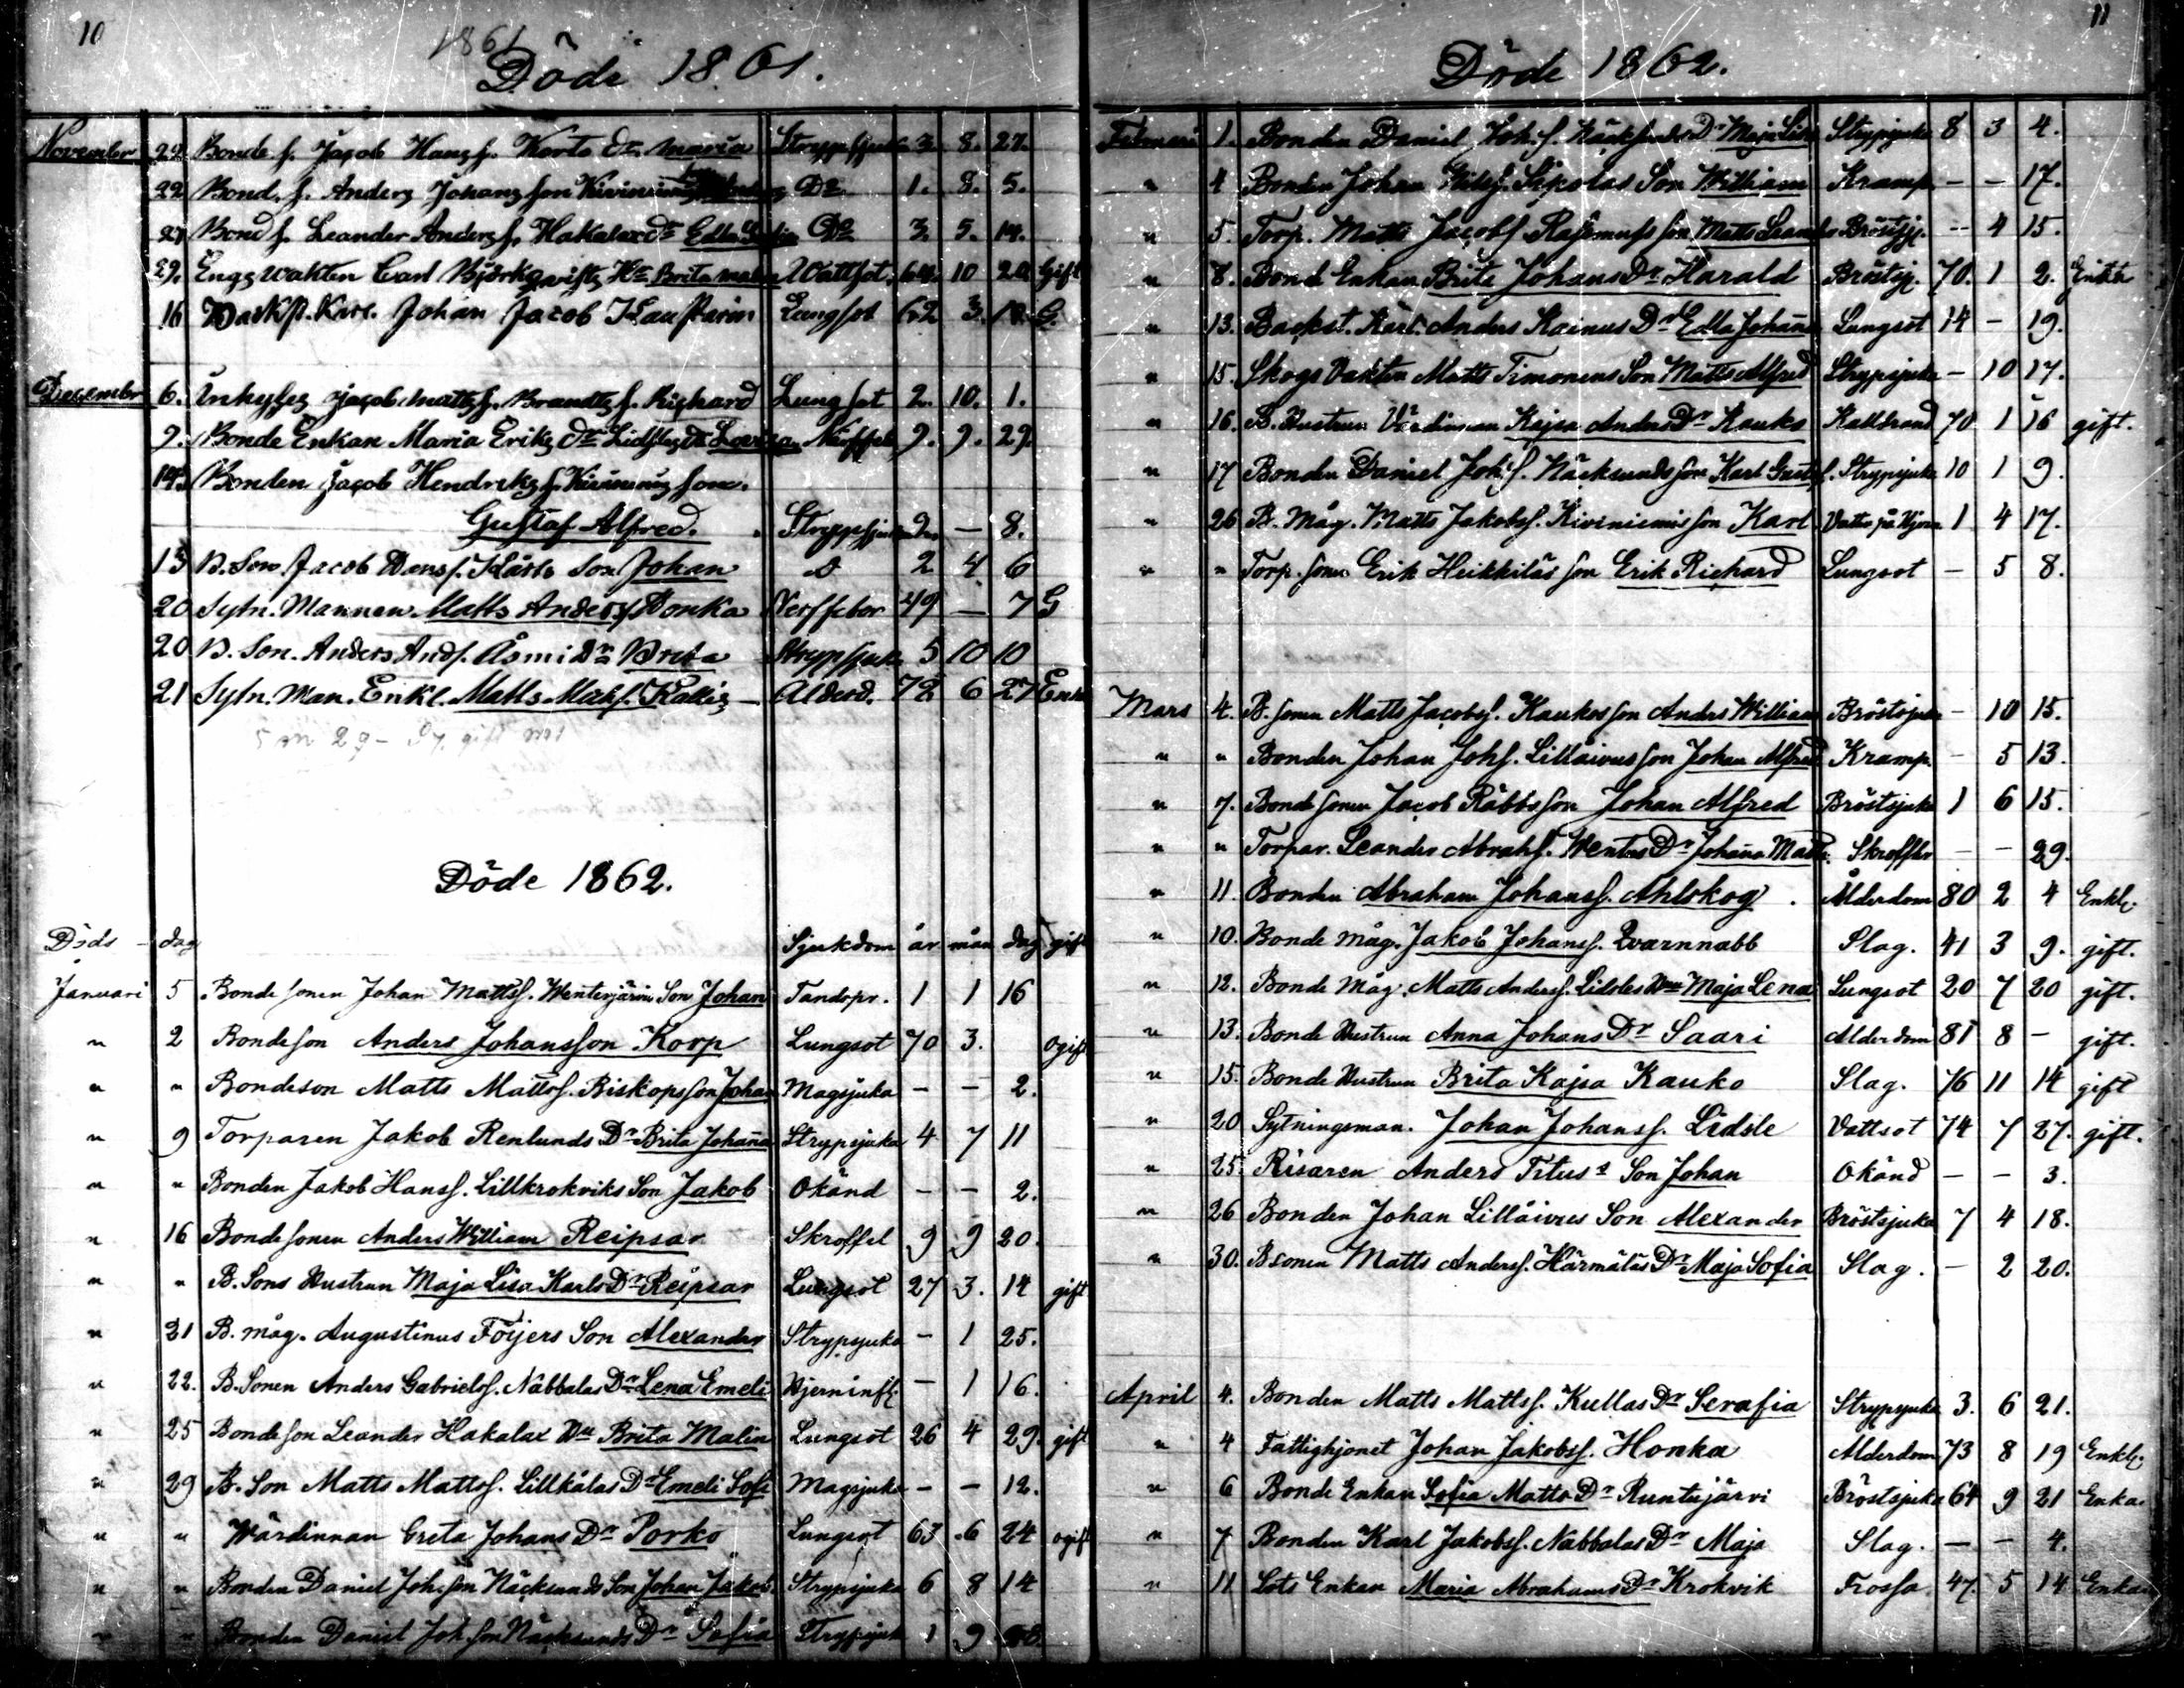 10
1861
Döde 1861.
November 22 Bonde s. Jacob Hans s. Korts Dr. Maria Strypsjuk 3. 8. 27.
22 Bond. s. Anders Johans son Kiviniemis Do 1. 8. 5.
27 Bond s. Leander Anders s. Hakalax dr Edla Sofia Do 3. 5. 14.
29. Engs wakten Carl Björkqvists Hu Brita Malin Wattsot. 64 10 20 Gift
16 Backst. Karl. Johan Jacob Kaustarin Lungsot 62 3. G.
December 6. Inhyses Jacob Matts s. Brandts s. Richard Lungsot 2. 10. 1.
9. Bonde Enkan Maria Eriks dr Lidsles dr Lovisa Nerffeb 9. 9. 29.
14. Bonden Jacob Hendriks s. Kiviniemis son.
Gustaf Alfred. Strypsjuk 2. — 8.
15 B. Son. Jacob Hans s. Kårts Son Johan D 2 4 6
20 Sytn. Mannen. Matts Anders s. Honka Nerffeber 49 — 7 G
20 B. Son. Anders Ands. Åsmi Dr Brita Strypsjuk 5 10 10
21 Sytn. Man. Enkl. Matts Mats s. Kallis — Alderd. 72 6 27 Enkl
5 m 29 - gift
Döde 1862.
Döds - dag Sjukdom år mån dag gift
Januari 5 Bonde sonen Johan Mattss. Wenterjärvis Son Johan Tandspr. 1 1 16
" 2 Bondeson Anders Johansson Korp Lungsot 70 3. ogift
" " Bondeson Matts Mattss. Biskops son Johan Magsjuka — — 2.
" 9 Torparen Jakob Renlunds Dr Brita Johana Strypsjuka 4 7 11
" " Bonden Jakob Hanss. Lillkrokviks Son Jakob Okänd — — 2.
" 16 Bonde sonen Anders William Reipsar Skroffel 9 9 20.
" " B. Sons Hustrun Maja Lisa Karls Dr Reipsar Lungsot 27 3. 14 gift
" 21 B. måg. Augustinus Föijers Son Alexander Strypsjuka — 1 25.
" 22. B. Sonen Anders Gabrielss. Nabbalas Dr Lena Emeli Hjerninfl. — 1 16.
" 25 Bondeson Leander Hakalax Hu Brita Malin Lungsot 26 4 29. gift
" 29 B. Son Matts Mattss. Lillkålas Dr Emeli Sofi Magsjuka — — 12.
" " Wärdinnan Greta Johans Dr Porko Lungsot 63 6 24 ogift
" " Bonden Daniel Joh. son Näcksunds Son Johan Jakob. Strypsjuka 6 8 14
" " Bonden Daniel Joh. son Näcksunds Dr Sofia Strypsjuk 1 9
11
Döde 1862.
Februari 1. Bonden Daniel Joh. s. Näcksunds Dr Maja Lisa Strypsjuka 8 3 4.
" 4 Bonden Johan Wills. Sikalas Son William Kramp — — 17.
" 5. Torp. Matts Jacobs. Rasmuss son Matts Leander Bröstsj. — 4 15.
" 8. Bond Enkan Brita Johans Dr Harald Bröstsj. 70. 1 2. Enka
" 13. Backst. Karl. Anders Rainus Dr Edla Johana Lungsot 14 — 19.
" 15. Skogs Vakten Matts Timonens Son Matts Alfred Strypsjuka — 10 17.
" 16. B. Hustrun Värdinnan Kajsa Anders Dr Kauko Kallbrand 70 1 16 gift.
" 17 Bonden Daniel Joh. s. Näcksunds son Karl Gustaf. Strypsjuka 10 1 9.
" 26 B. Måg. Matts Jakobss. Kiviniemis son Karl Vatten på Hjern 1 4 17.
" " Torp. sonen Erik Heikkiläs son Erik Richard Lungsot — 5 8.
Mars 4. B. sonen Matts Jacobss. Kaukos son Anders William Bröstsjuka — 10 15.
" " Bonden Johan Johs. Lillåivus son Johan Alfred Kramp. — 5 13.
" 7. Bonde sonen Jacob Råbbs son Johan Alfred Bröstsjuka 1 6 15.
" " Torpar. Leander Abrahs. Wentus Dr Johana Skroffler — — 29.
" 11. Bonden Abraham Johanss. Ahlskog. Ålderdom 80 2 4 Enkl.
" 10. Bonde måg. Jakob Johanss. Qvarnnabb Slag. 41 3 9. gift.
" 12. Bonde Måg. Matts Anderss. Lidsles Hu Maja Lena Lungsot 20 7 20 gift.
" 13. Bonde Hustrun Anna Johans Dr Saari Alderdom 81 8 — gift.
" 15. Bonde Hustrun Brita Kajsa Kauko Slag. 76 11 14 gift
" 20 Sytningsman. Johan Johanss. Lidsle Vattsot 74 7 27. gift.
" 25. Risaren Anders Titus s Son Johan Okänd — — 3.
" 26 Bonden Johan Lillåivus Son Alexander Bröstsjuka 7 4 18.
" 30. Bsonen Matts Anderss. Härmäläs Dr Maja Sofia Slag. — 2 20.
April 4. Bonden Matts Mattss. Kullas Dr Serafia Strypsjuka 3. 6 21.
" 4 Fattighjonet Johan Jakobss. Honka Alderdom 73 8 19 Enkl.
" 6 Bonde Enkan Sofia Matts Dr Runtujärvi Bröstsjuka 64 9 21 Enka.
" 7 Bonden Karl Jakobss. Nabbalas Dr Maja Slag. — — 4.
" 11 Lots Enkan Maria Abrahams Dr Krokvik Frossa 47. 5 14 Enkan